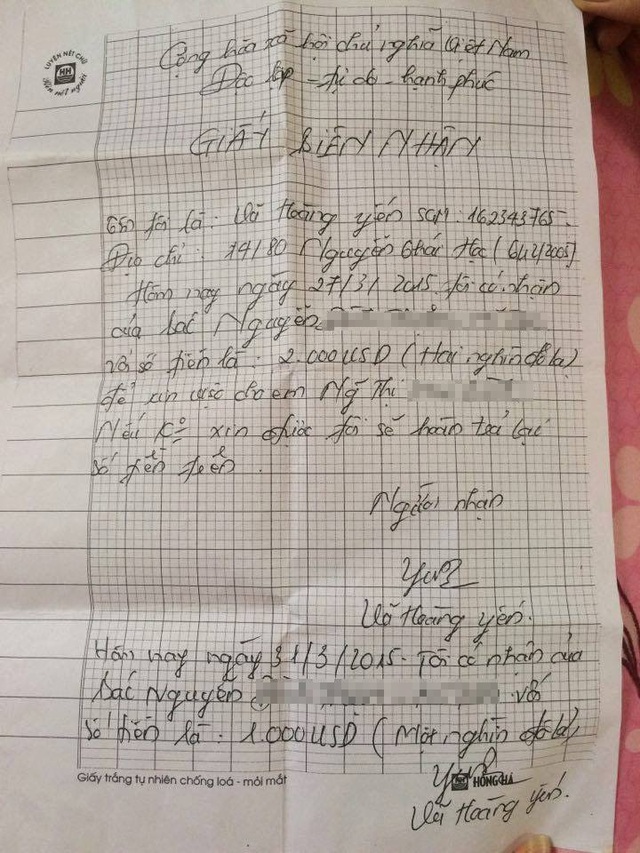 LUYỆN NÉT CHỮ
HH
Rèn nết người
Cộng hòa xã hội chủ nghĩa Việt Nam
Độc lập - tự do - hạnh phúc
GIẤY BIÊN NHẬN
tôi là: Vũ Hoàng yến SCM: 162343765.
Địa chỉ: 74/80 Nguyễn Thái Học
Hôm nay ngày 27/3/2015 tôi có nhận
của bác Nguyễn
với số tiền là: 2.000USD (Hai nghìn đô la)
để xin việc cho em Ng Thị
Nếu ko xin được tôi sẽ hoàn trả lại
số tiền trên.
Người nhận
Yến
Vũ Hoàng yến.
Hôm nay ngày 31/3/2015. Tôi có nhận của
bác Nguyễn với
số tiền là: 1.000USD (Một nghìn đô la)
Giấy trắng tự nhiên chống loá - mỏi mắt
Yến HH HỒNG HÀ
Vũ Hoàng yến.